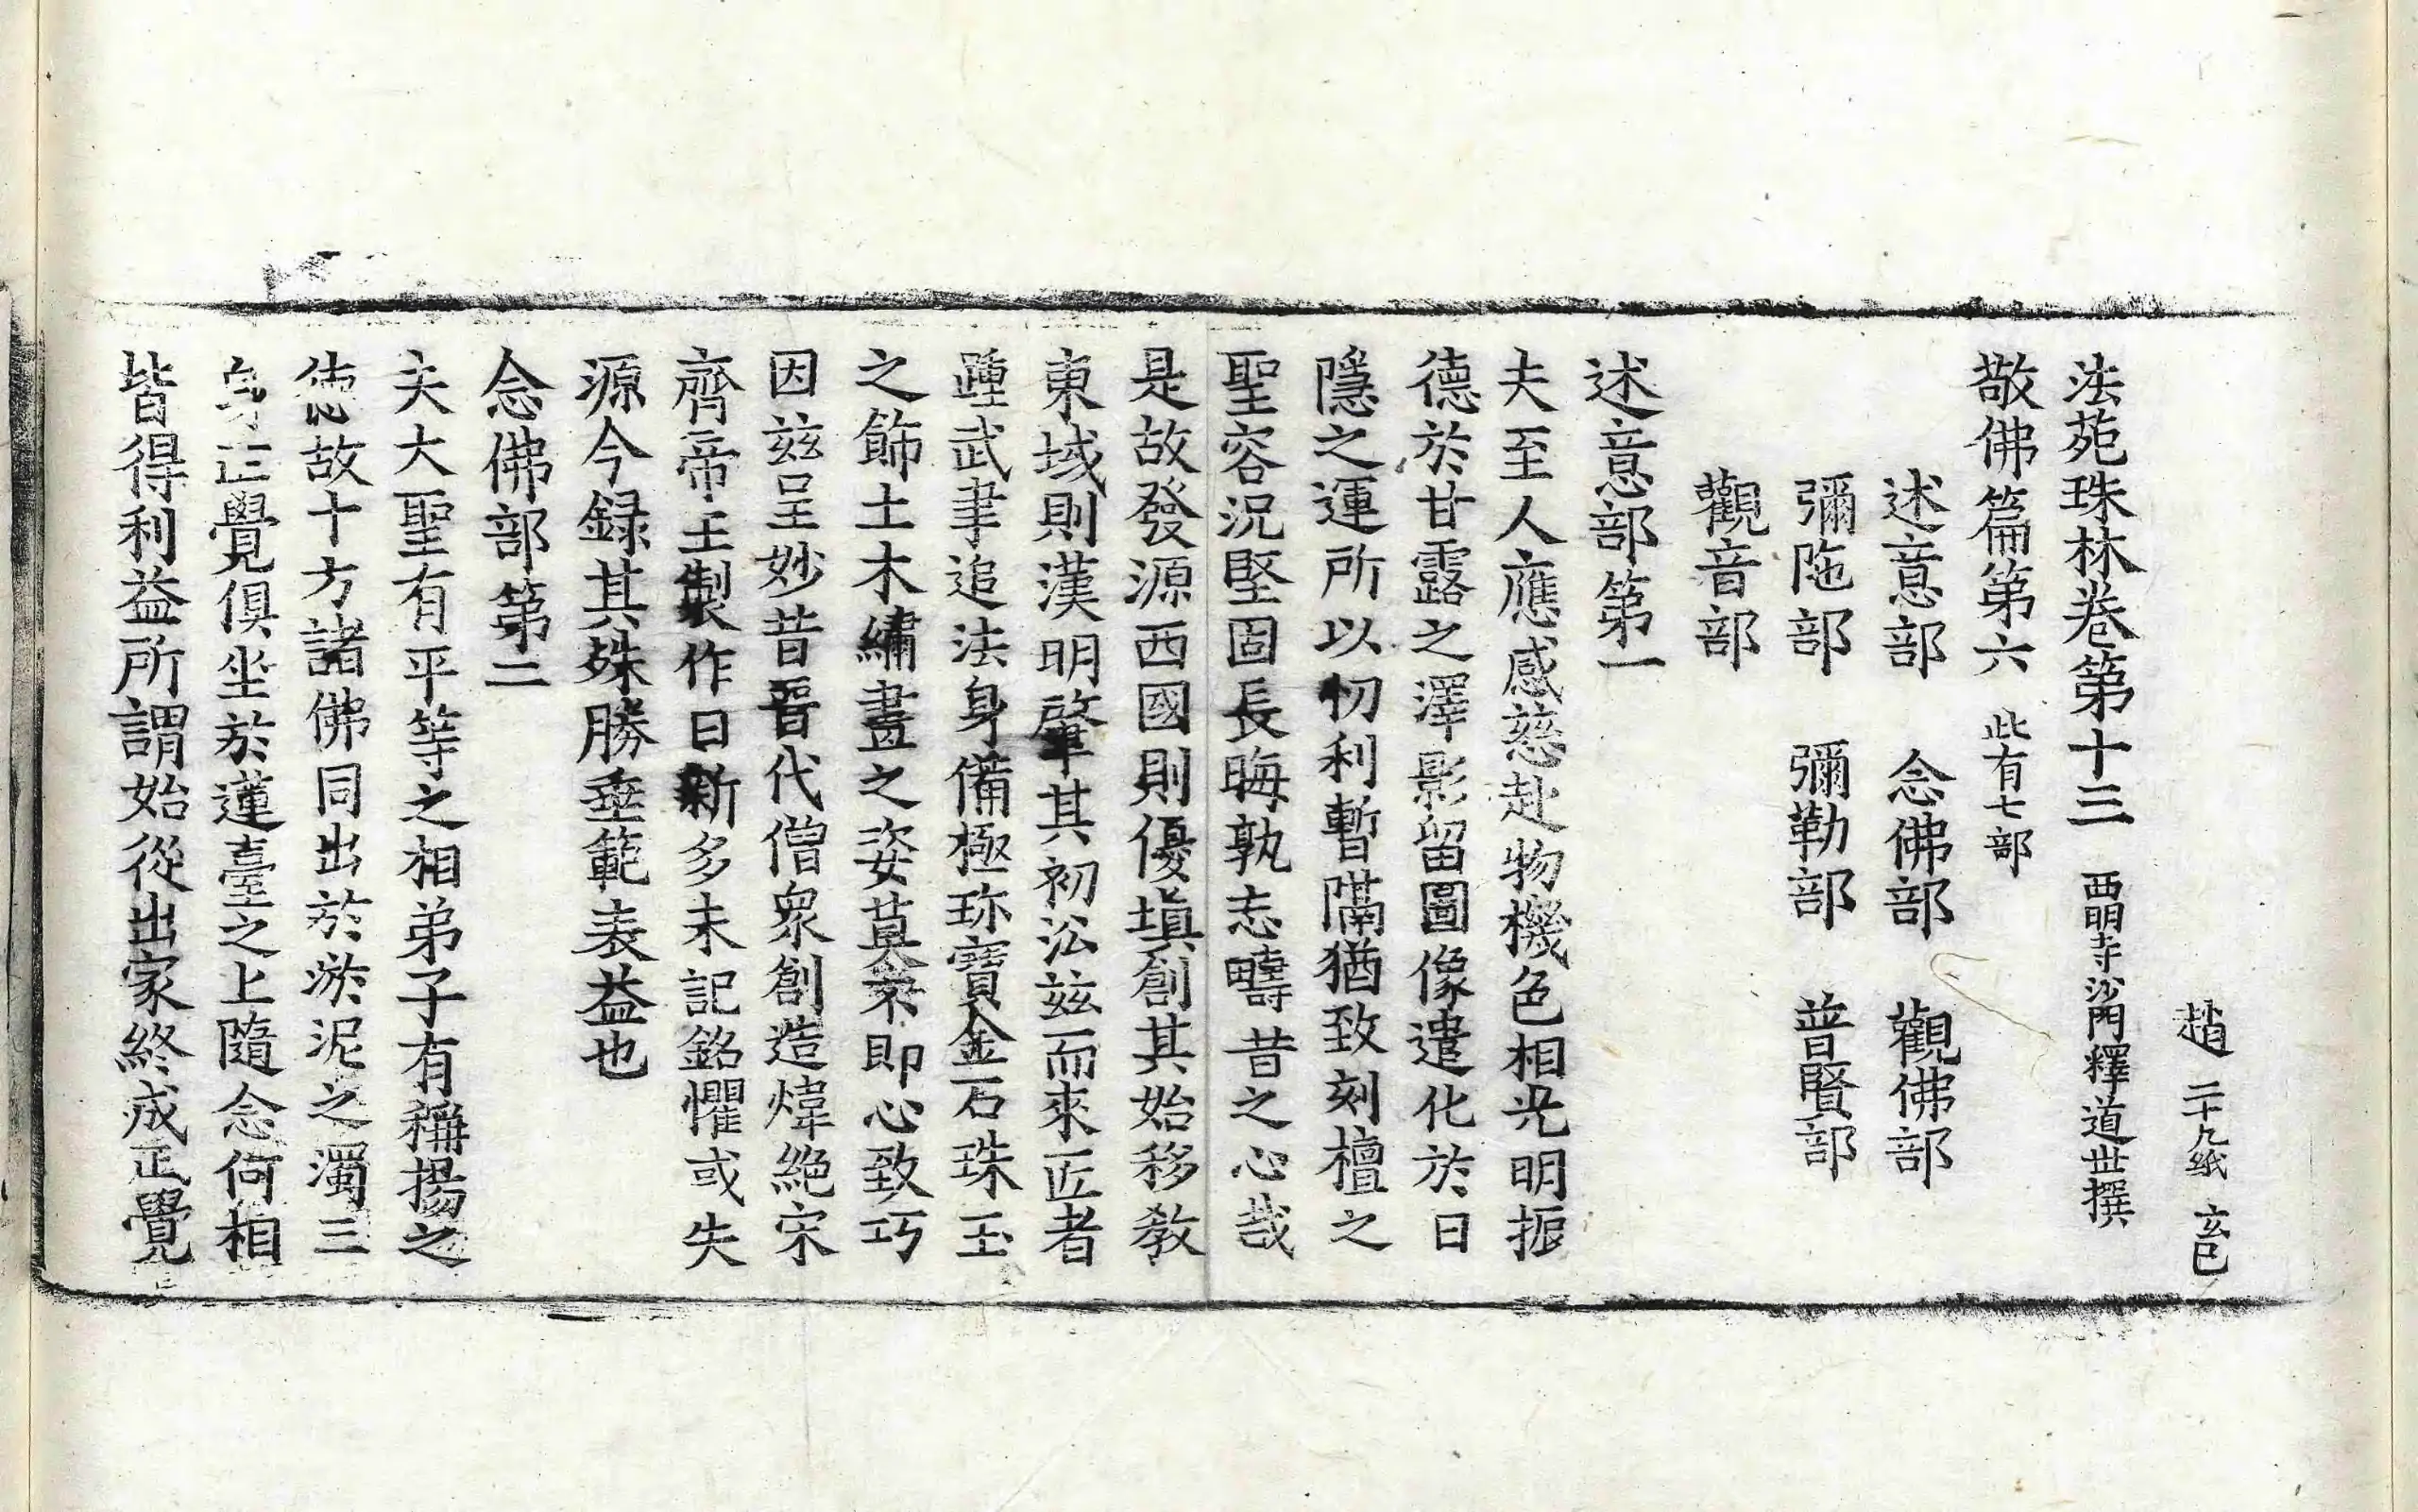 趙　二十九紙　玄巳
法苑珠林卷第十三　西明寺沙門釋道世撰
敬佛篇第六　此有七部
述意部　念佛部　觀佛部
彌陁部　彌勒部　普賢部
觀音部
述意部第一
夫至人應感慈赴物機色相光明振
德於甘露之澤影留圖像遣化於日
隱之運所以忉利暫隔猶致刻檀之
聖容況堅固長晦孰志疇昔之心哉
是故發源西國則優塡創其始移教
東域則漢明肇其初㳂兹而來匠者
踵武聿追法身備極珎寶金石珠玉
之飾土木繡畫之姿莫不即心致巧
因兹呈妙昔晉代僧衆創造煒絶宋
齊帝王製作日新多未記銘懼或失
源今録其殊勝垂範表益也
念佛部第二
夫大聖有平等之相弟子有稱揚之
德故十方諸佛同出於淤泥之濁三
身正覺俱坐於蓮臺之上隨念何相
皆得利益所謂始從出家終成正覺